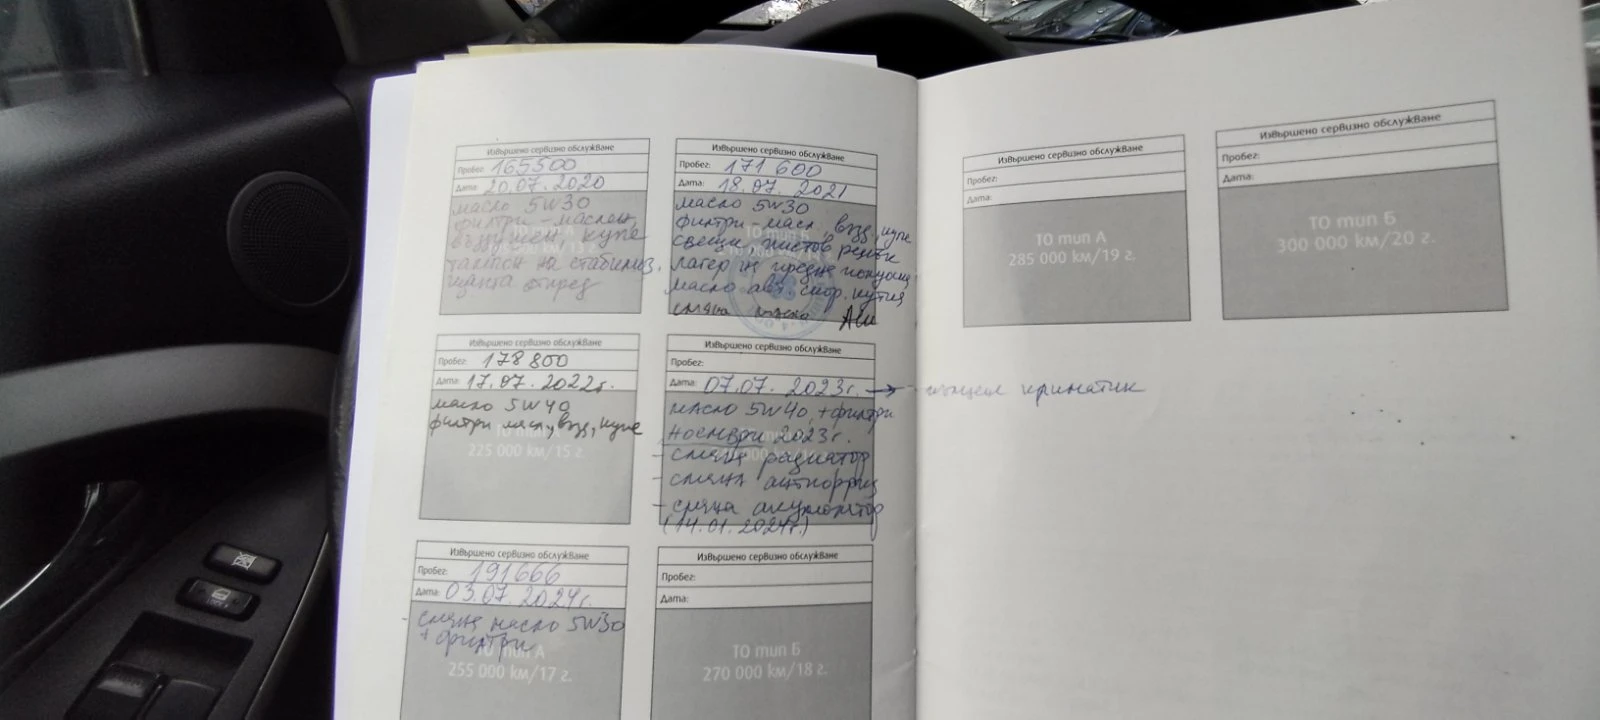 Извършено сервизно обслужване
Пробег: 165500
Дата: 20.07.2020
масло 5W30
филтри - маслен,
въздушен, купе
тампон на стабилиз.
щанга отпред
Извършено сервизно обслужване
Пробег: 171 600
Дата: 18.07.2021
масло 5W30
филтри - масл., възд., купе
свещи, пистов ремък
лагер на предна полуоска
масло авт. скор. кутия
смяна
Извършено сервизно обслужване
Пробег: 178 800
Дата: 17.07.2022г.
масло 5W40
филтри масл., възд., купе
225 000 km/15 г.
Извършено сервизно обслужване
Пробег:
Дата: 07.07.2023г. → - климатик
масло 5W40, + филтри
ноември 2023г.
- смяна радиатор
- смяна антифриз
- смяна акумулатор
(14.01.2024г.)
Извършено сервизно обслужване
Пробег: 191666
Дата: 03.07.2024г.
- смяна масло 5W30
+ филтри
ТО тип А
255 000 km/17 г.
Извършено сервизно обслужване
Пробег:
Дата:
ТО тип Б
270 000 km/18 г.
Извършено сервизно обслужване
Пробег:
Дата:
ТО тип А
285 000 km/19 г.
Извършено сервизно обслужване
Пробег:
Дата:
ТО тип Б
300 000 km/20 г.